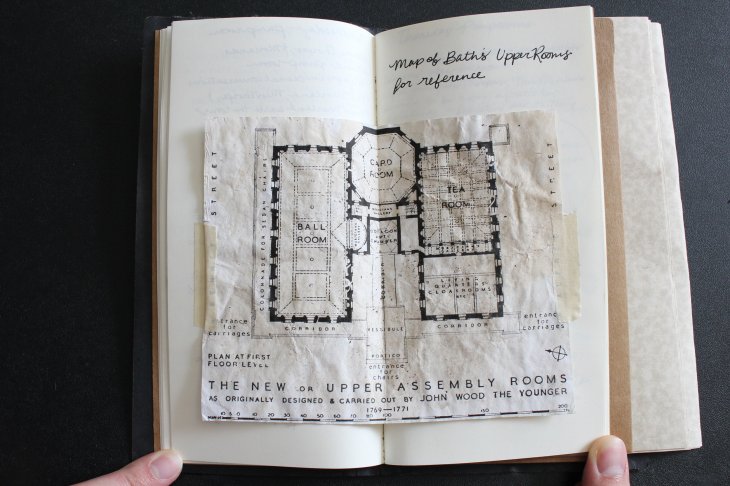 Map of Bath's Upper Rooms
for reference
STREET
STREET
COLONNADE FOR SEDAN CHAIRS
CARD
ROOM
TEA
ROOM
BALL
ROOM
LIVING
QUARTERS
CLOAKROOMS
CORRIDOR
VESTIBULE
CORRIDOR
entrance
for
carriages
entrance
for
carriages
PORTICO
entrance
for
chairs
PLAN AT FIRST
FLOOR LEVEL
THE NEW OR UPPER ASSEMBLY ROOMS
AS ORIGINALLY DESIGNED & CARRIED OUT BY JOHN WOOD THE YOUNGER
1769—1771